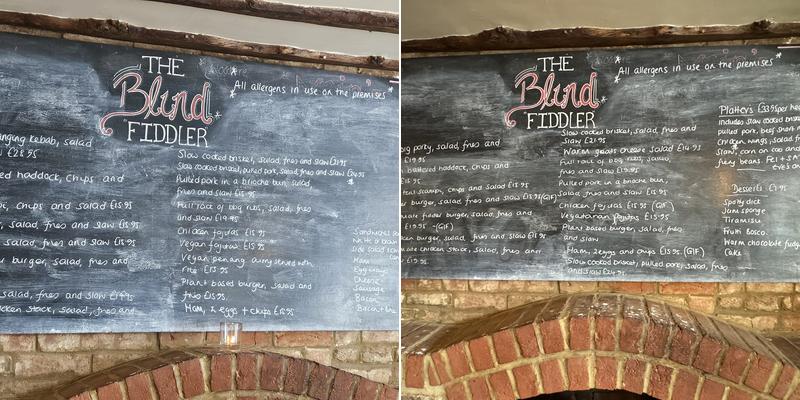 THE
Blind
FIDDLER
*All allergens in use on the premises*
kebab, salad
£28.95
haddock, chips and
chips and salad £15.95
salad, fries and slaw £15.95
burger, salad, fries and
salad, fries and slaw
stack, salad, fries and
Slow cooked brisket, salad, fries and slaw £21.95
Slow cooked brisket, pulled pork, salad, fries and slaw
Pulled pork in a brioche bun, salad,
fries and slaw £15.95
Full rack of bbq ribs, salad, fries
and slaw £19.95
Chicken fajitas £15.95
Vegan fajitas £15.95
Vegan penang curry served with
rice £13.95
Plant based burger, salad and
fries £15.95
Ham, 2 eggs + chips
Sandwiches
Ham
Egg mayo
Cheese
Sausage
Bacon
THE
Blind
FIDDLER
*All allergens in use on the premises*
pork, salad, fries and
£19.95
battered haddock, chips and
£15.95
scampi, chips and salad £15.95
burger, salad, fries and slaw £15.95 (GIF)
burger, salad, fries and
£19.95 (GIF)
chicken burger, salad, fries and slaw £15.95
chicken stack, salad, fries and
£19.95
Slow cooked brisket, salad, fries and
slaw £21.95
Warm goats cheese salad £14.95
Full rack of bbq ribs, salad,
fries and slaw £19.95
Pulled pork in a brioche bun,
salad, fries and slaw £15.95
Chicken fajitas £15.95 (GIF)
Vegetarian fajitas £15.95
Plant based burger, salad, fries
and slaw
Ham, 2 eggs and chips £15.95 (GIF)
Slow cooked brisket, pulled pork, salad, fries
and slaw £24.95
Platters £33.95 per
includes slow cooked brisket
pulled pork, beef short
chicken wings, salad,
slaw, corn on cob and
fiery beans
Desserts £7.95
Spotty dick
Jam sponge
Tiramisu
Frutti Bosco
Warm chocolate fudge
Cake